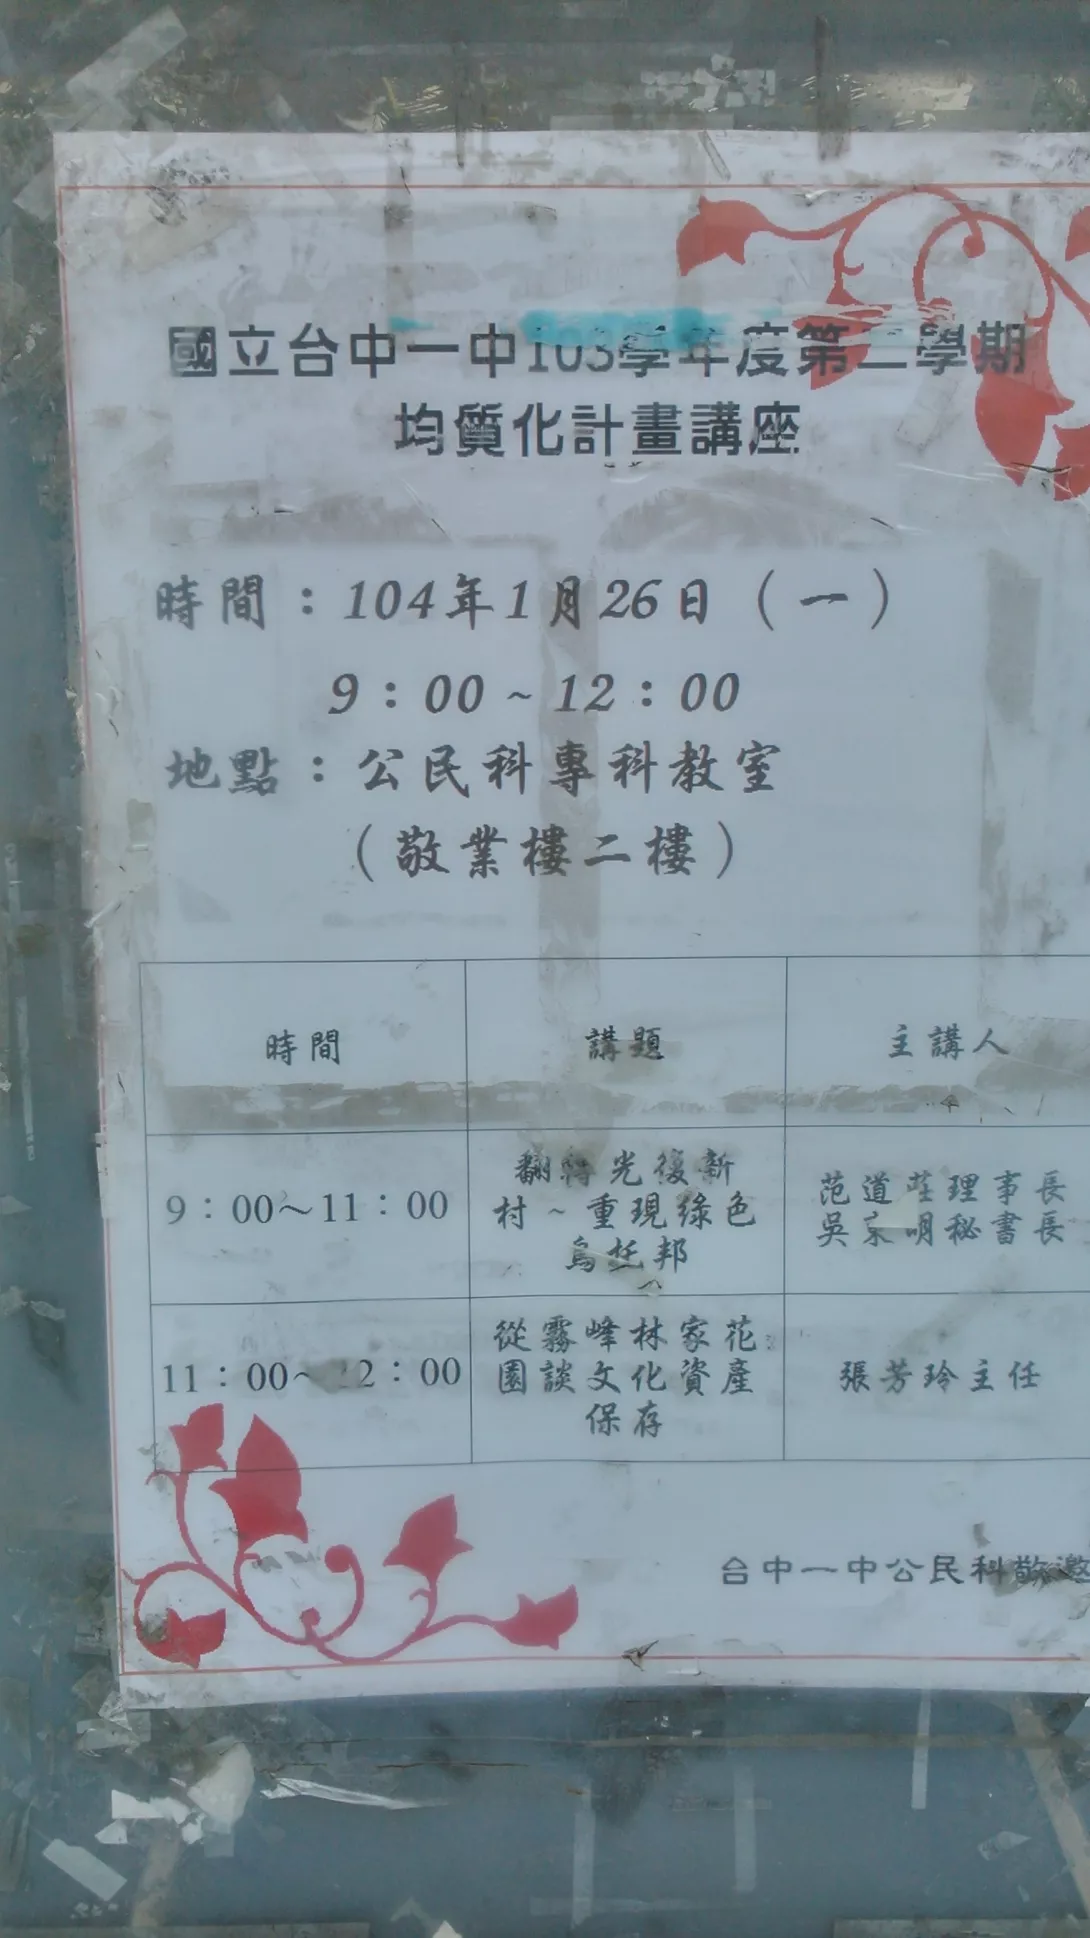 國立台中一中103學年度第二學期
均質化計畫講座
時間：104年1月26日（一）
9：00~12：00
地點：公民科專科教室
（敬業樓二樓）
時間 講題 主講人
9：00～11：00
翻轉光復新
村~重現綠色
烏托邦
范道莊理事長
吳京明秘書長
11：00~12：00
從霧峰林家花
園談文化資產
保存
張芳玲主任
台中一中公民科敬邀